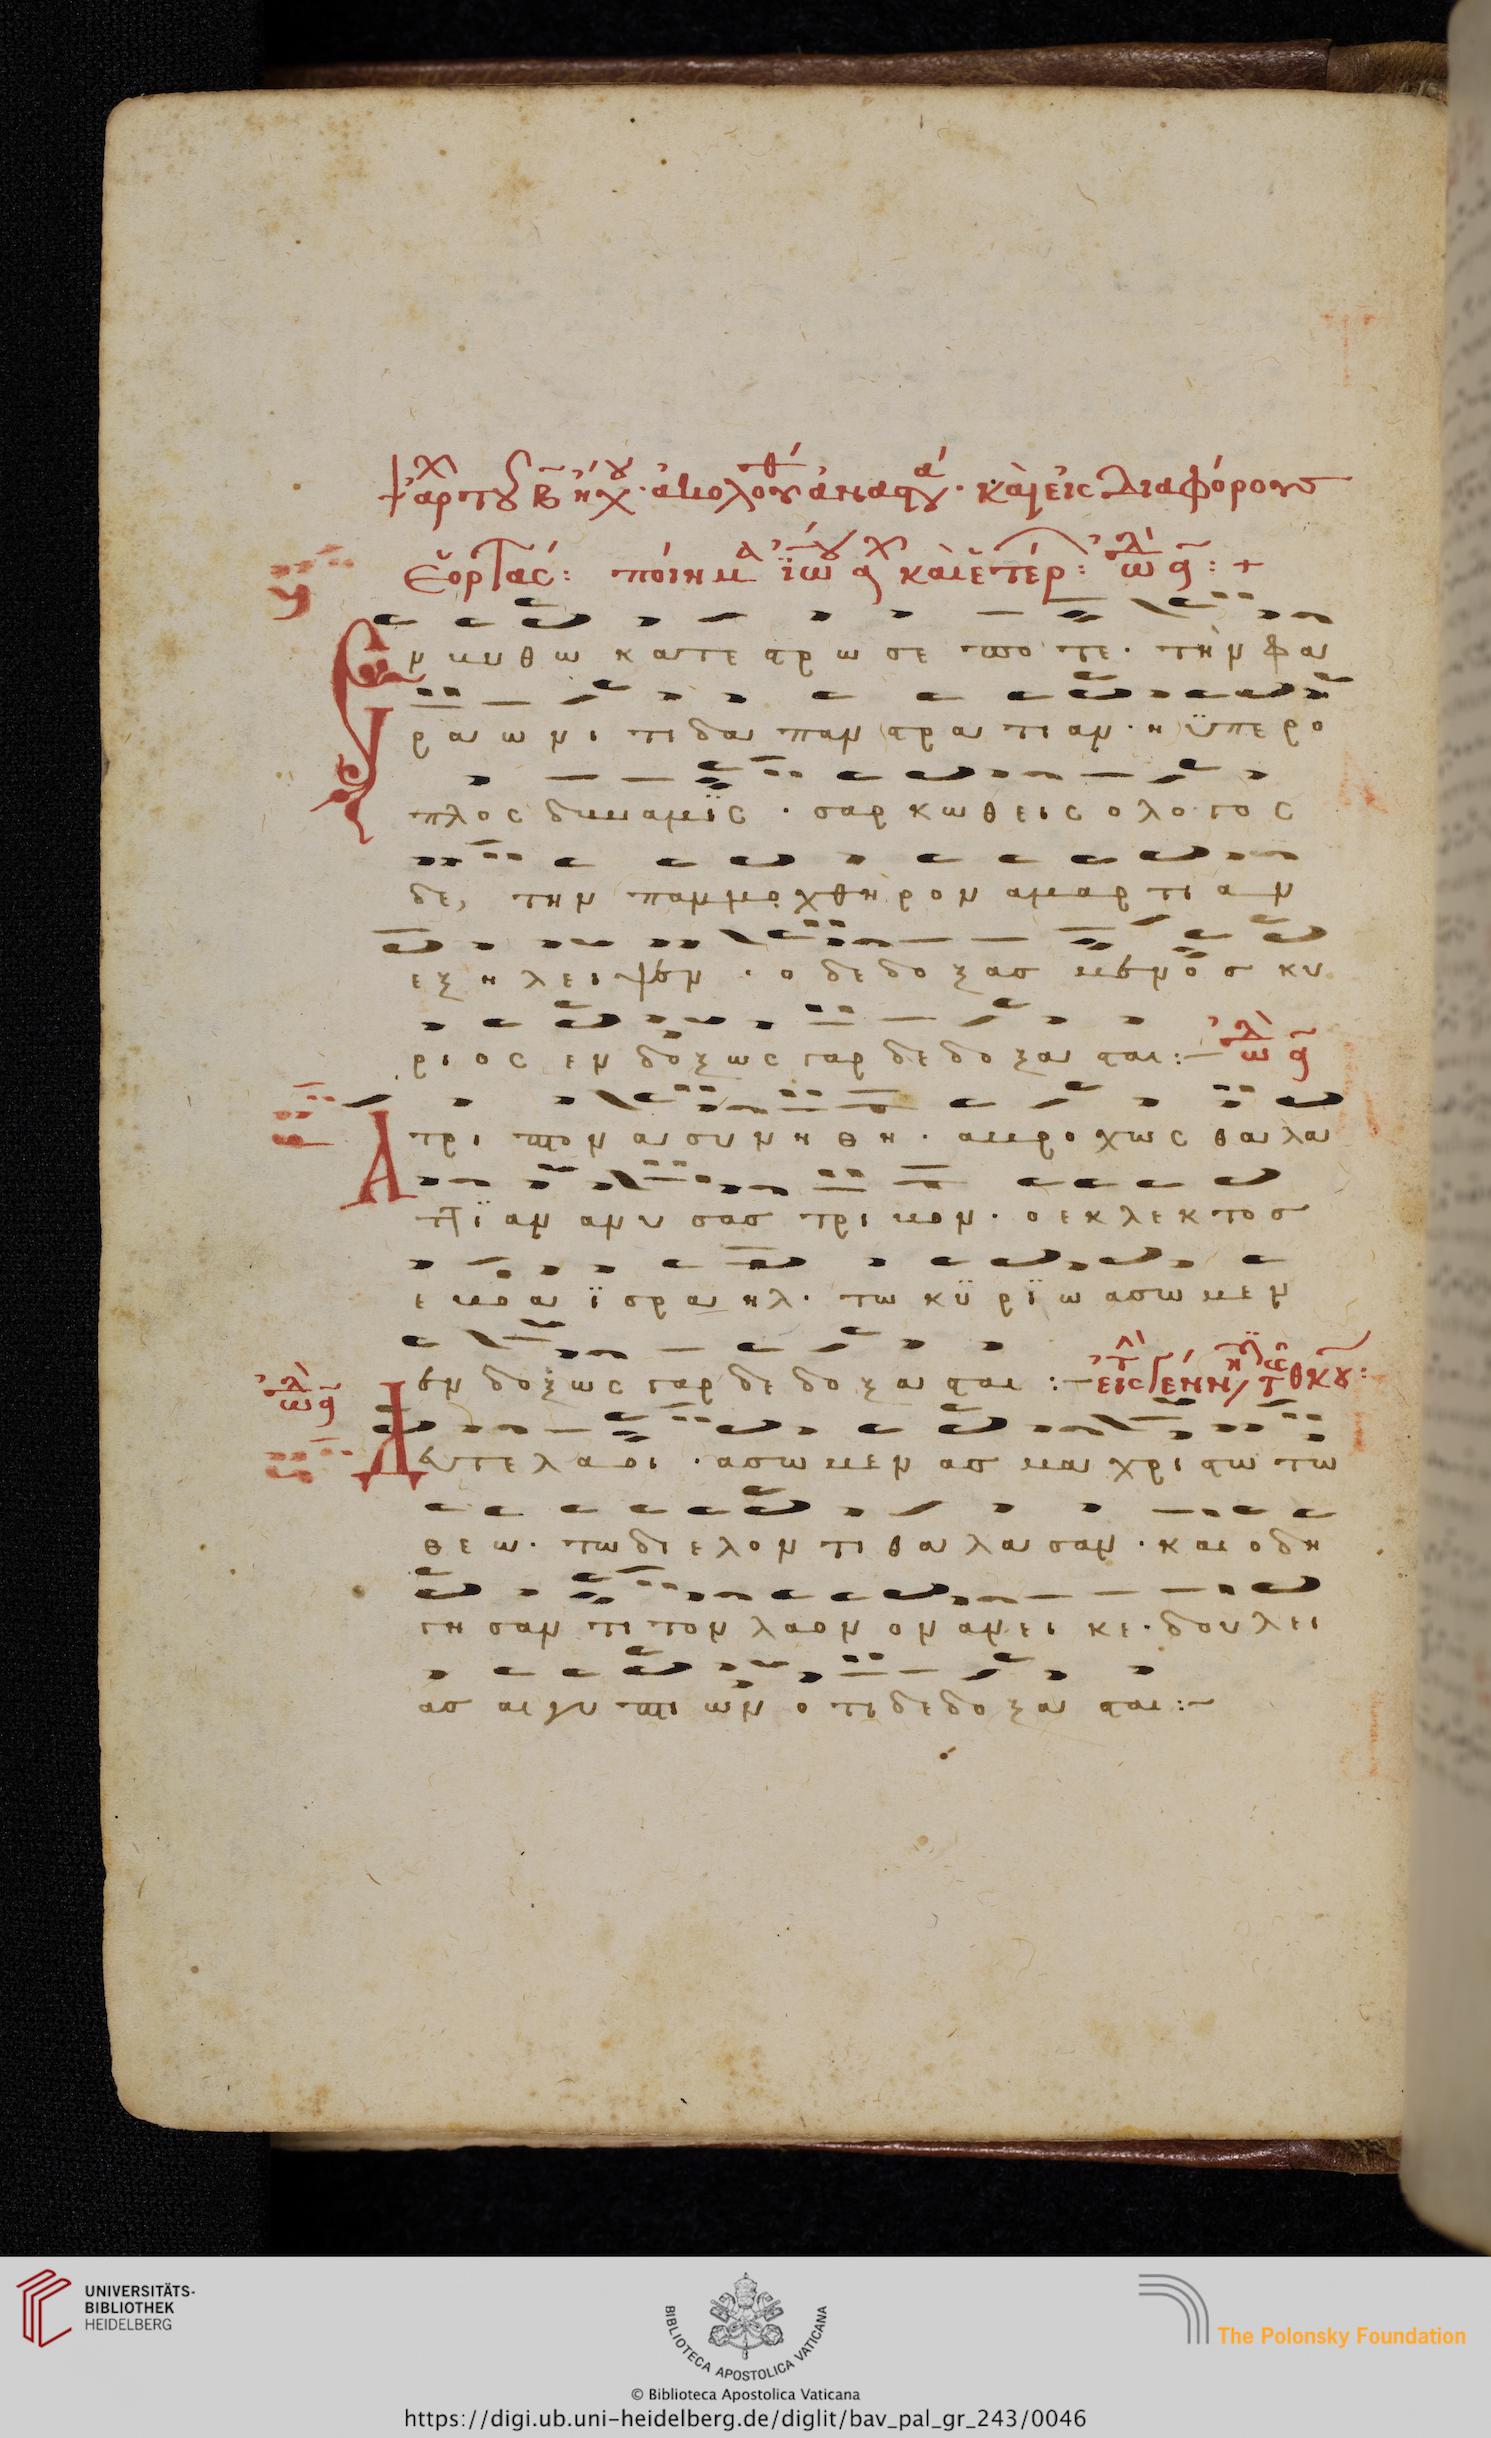 ἀρχ τοῦ β ἤχου · ἀκολουθ ἀναστ · καὶ εἰς διαφόρους
ἑορτάς : ποίημα ἰω καὶ ἑτέρ : ὠδὴ α : +
Εν βυθω κατε στρω σε πο τε · την φα
ρα ω νι τι δα παν στρα τι αν · η ϋπερο
πλος δυναμϊς · σαρ κωθεις ο λογος
δε, την παμμοχθηρον αμαρ τι α ν
εξ η λει ψεν · ο δεδο ξας μενος κυ
ριος εν δοξως γαρ δεδο ξα σται :~ ὠδὴ α
Α τρι πτον α συν η θη · αβροχως θα λα
ττϊ αν αν υ σας τρι βον · ο εκ λεκ τος
ε βοα ϊ σρα ηλ · τω κϋ ρϊ ω ασω μεν
εν δοξως γαρ δε δο ξα σται :~ εἰς τ γενν τ θκου :
ὠδὴ α
Δευτε λαοι · ασω μεν ας μα χρι στω τω
θεω · τω δι ε λον τι θα λα σαν · και οδη
γη σαν τι τον λαον ον αν ει κε · δου λει
ας αιγυ πτι ων ο τι δε δο ξα σται :~
UNIVERSITÄTS-
BIBLIOTHEK
HEIDELBERG
BIBLIOTECA APOSTOLICA VATICANA
The Polonsky Foundation
© Biblioteca Apostolica Vaticana
https://digi.ub.uni-heidelberg.de/diglit/bav_pal_gr_243/0046